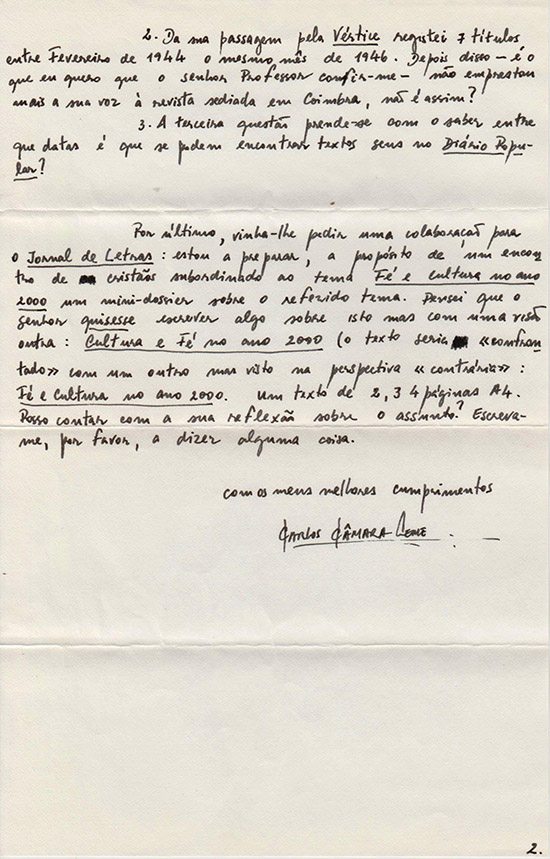 2. Da sua passagem pela Vértice registei 7 títulos
entre Fevereiro de 1944 o mesmo mês de 1946. Depois disso – é o
que eu quero que o senhor Professor confir-me – não emprestou
mais a sua voz à revista sediada em Coimbra, não é assim?
3. A terceira questão prende-se com o saber entre
que datas é que se podem encontrar textos seus no Diário Popu-
lar?
Por último, vinha-lhe pedir uma colaboração para
o Jornal de Letras: estou a preparar, a propósito de um encon
tro de cristãos subordinado ao tema Fé e Cultura no ano
2000 um mini-dossier sobre o referido tema. Pensei que o
senhor quisesse escrever algo sobre isto mas com uma visão
outra: Cultura e Fé no ano 2000 (o texto seria «confron
tado» com um outro mas visto na perspectiva «contrária»:
Fé e Cultura no ano 2000. Um texto de 2, 3 4 páginas A4.
Posso contar com a sua reflexão sobre o assunto? Escreva-
me, por favor, a dizer alguma coisa.
com os meus melhores cumprimentos
Carlos Câmara Leme
2.